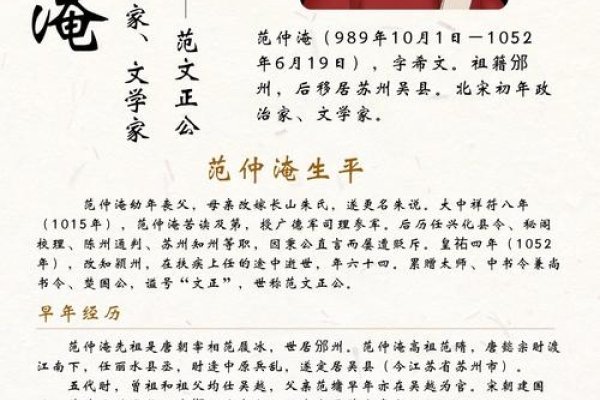 淹
家、文学家
——范文正公
范仲淹（989年10月1日－1052
年6月19日），字希文。祖籍邠
州，后移居苏州吴县。北宋初年政
治家、文学家。
范仲淹生平
范仲淹幼年丧父，母亲改嫁长山朱氏，遂更名朱说。大中祥符八年
（1015年），范仲淹苦读及第，授广德军司理参军。后历任兴化县令、秘阁
校理、陈州通判、苏州知州等职，因秉公直言而屡遭贬斥。皇祐四年（1052
年），改知颍州，在扶疾上任的途中逝世，年六十四。累赠太师、中书令兼尚
书令、楚国公，谥号“文正”，世称范文正公。
早年经历
范仲淹先祖是唐朝宰相范履冰，世居邠州。范仲淹高祖范隋，唐懿宗时渡
江南下，任丽水县丞，时逢中原兵乱，遂定居吴县（今江苏省苏州市）。
五代时，曾祖和祖父均仕吴越，父亲范墉早年亦在吴越为官。宋朝建国